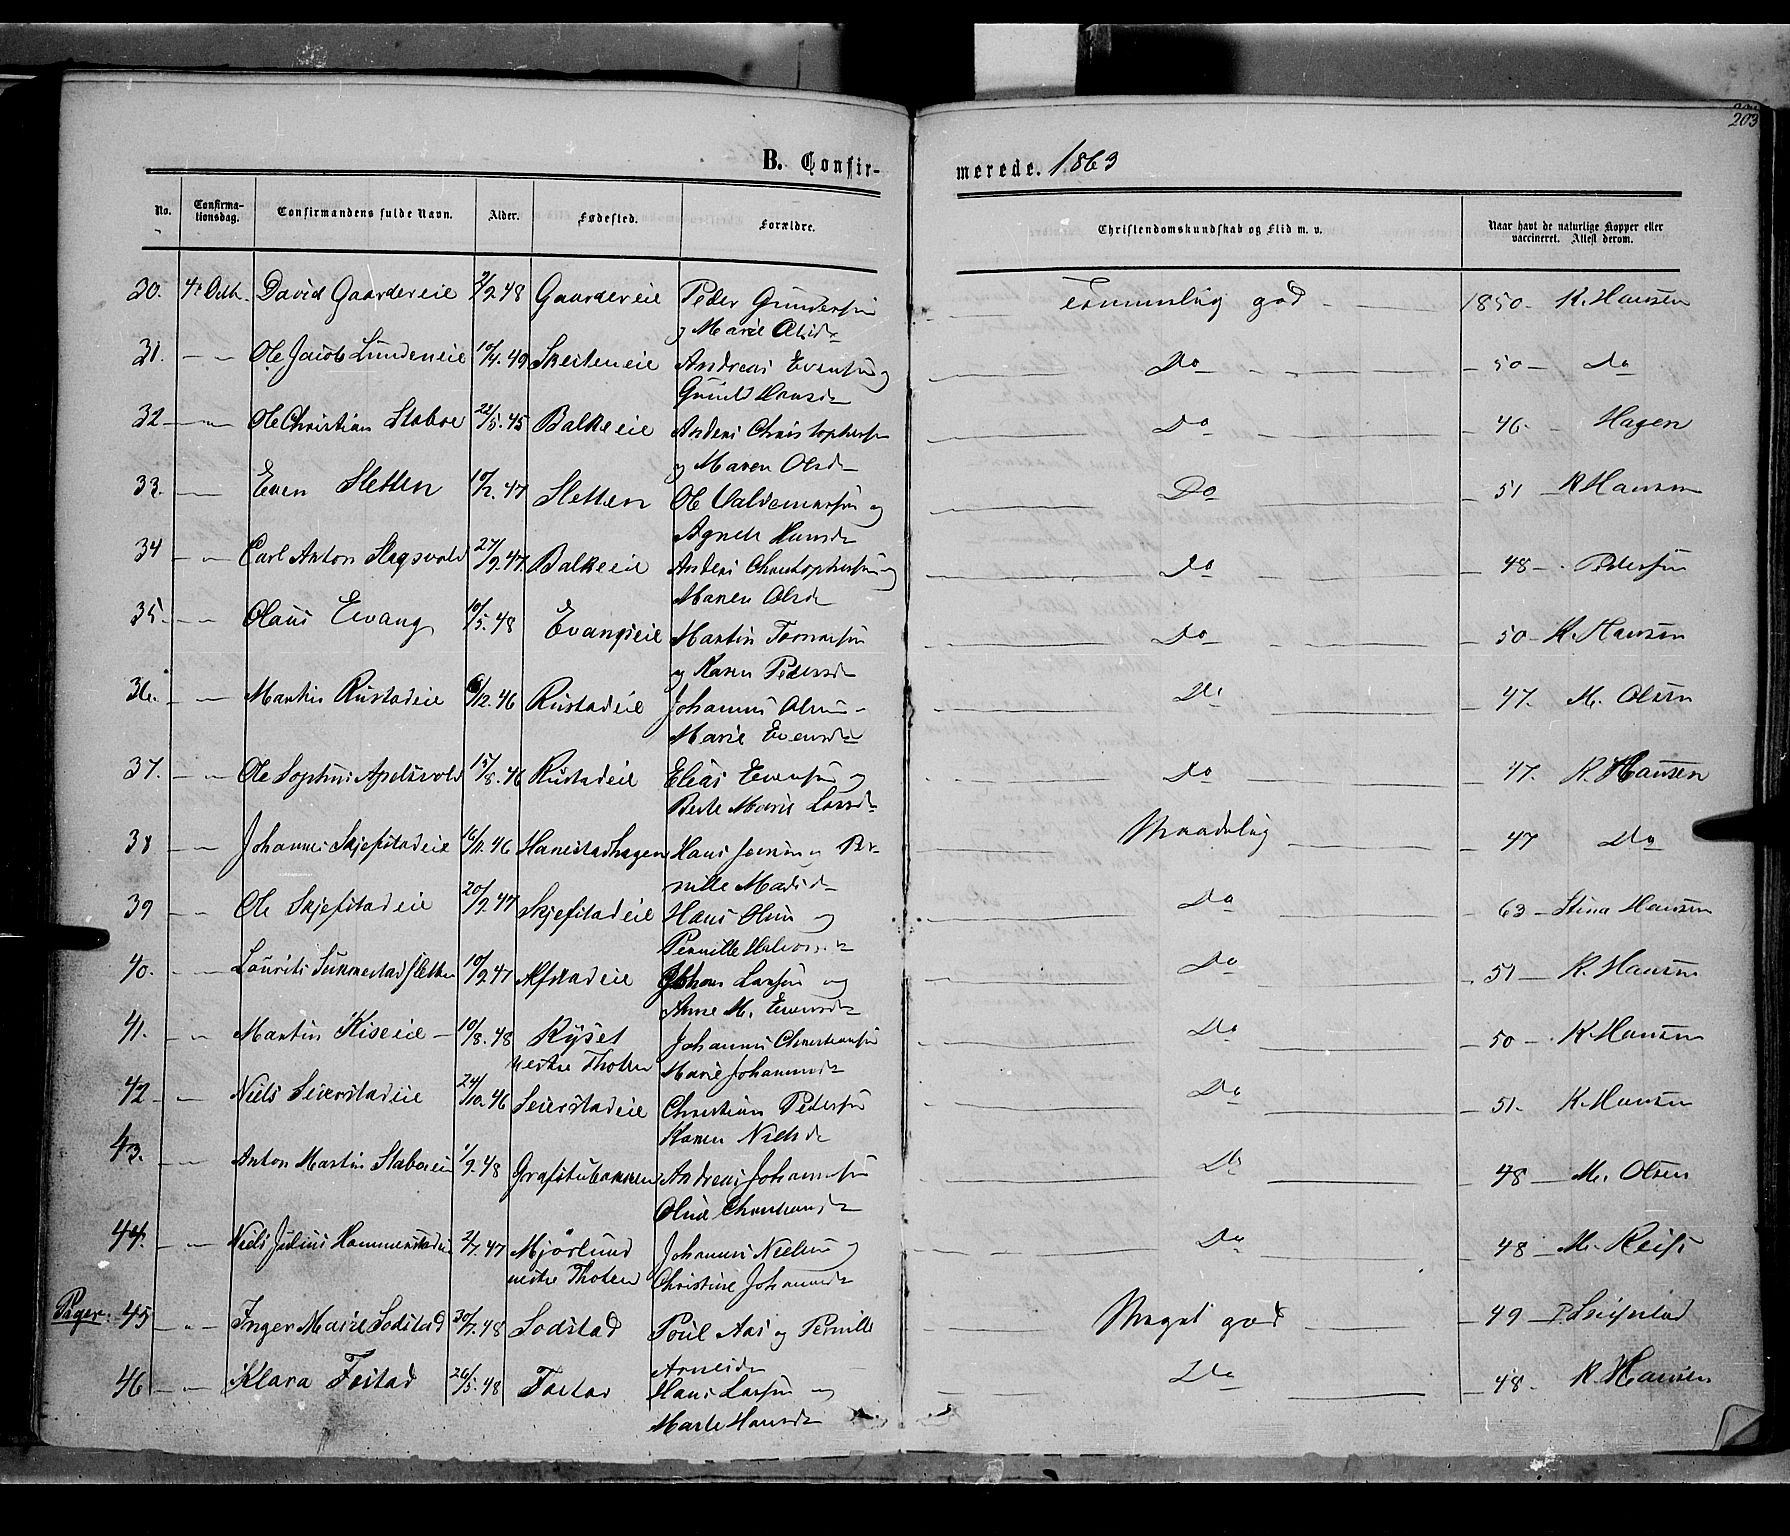 203
B. Confir-
merede. 1863
No. Confirma-tionsdag. Confirmandens fulde Navn. Alder. Fødested. Forældre. Christendomskundskab og Flid m. v. Naar havt de naturlige Kopper eller vaccineret. Attest derom.
30. 4 Octb. David Gaardereie 2/2.48 Gaardereie Peder Gundersen Temmelig god 1850 - K. Hansen
og Marie Olsd
31. Ole Jacob Lundeneie 10/4.49 Skeiteneie Andreas Evensen og Do 50 - Do
Gunild Hansd
32 Ole Christian Staboe 22/5.45 Balkeeie Anders Christophersen Do 46 - Hagen
og Maren Olsd
33. Even Sletten 10/2.47 Sletten Ole Valdemarsen og Do 51 - K Hansen
Agnete Hansd
34 Carl Anton Slagsvold 27/9.47. Balkeeie Anders Christophersen og Do 48 - Pedersen
Maren Olsd
35. Olaus Evang 10/5.48 Evangseie Martin Do 50 - K. Hansen
og Karen Pedersd
36. Martin Rustadeie 6/12.46 Rustadeie Johannes Olsen - Do 47. M. Olsen
Marie Evensd
37. Ole Sophus Apelsvold 15/8.46 Rustadeie Elias Evensen og Do 47. K. Hansen
Berte Marie Larsd
38 Johannes Skjefstadeie 16/11.46 Hanestadhagen Hans Jensen og Per- Maadelig 47 Do
nille Madsd
39 Ole Skjefstadeie 20/2.47 Skjefstadeie Hans Olsen og Do 63 - Stina Hansen
Pernille Halvorsd
40. Lourits Summestadsletten 10/2.47 Alfstadeie Johan Larsen og Do 51 - K. Hansen
Anne M. Evensd
41. Martin Kiseeie - 10/8.48 Ryset Johannes Christiansen Do 50 - K Hansen
vestre Thoten Marie Johannesd
42 Niels Seierstadeie 24/10.46 Seierstadeie Christian Pedersen Do 51. K. Hansen
Karen Nielsd
43. Anton Martin Staboeeie 1/2.48 Andreas Johannesen Do 48 - M. Olsen
Oline Christiansd
44. Niels Julius Hammerstadeie 2/7.47 Mjørlund Johannes Nielsen og Do 48 - M. Reiss
vestre Thoten Christine Johannesd
Piger. 45 Inger Marie Sodstad 30/7.48 Sodstad Poul Aas og Pernille Meget god 49
Arnesd
46 Klara Fostad 26/5.48 Fostad Hans Larsen og Do 48. K. Hansen
Marte Hansd